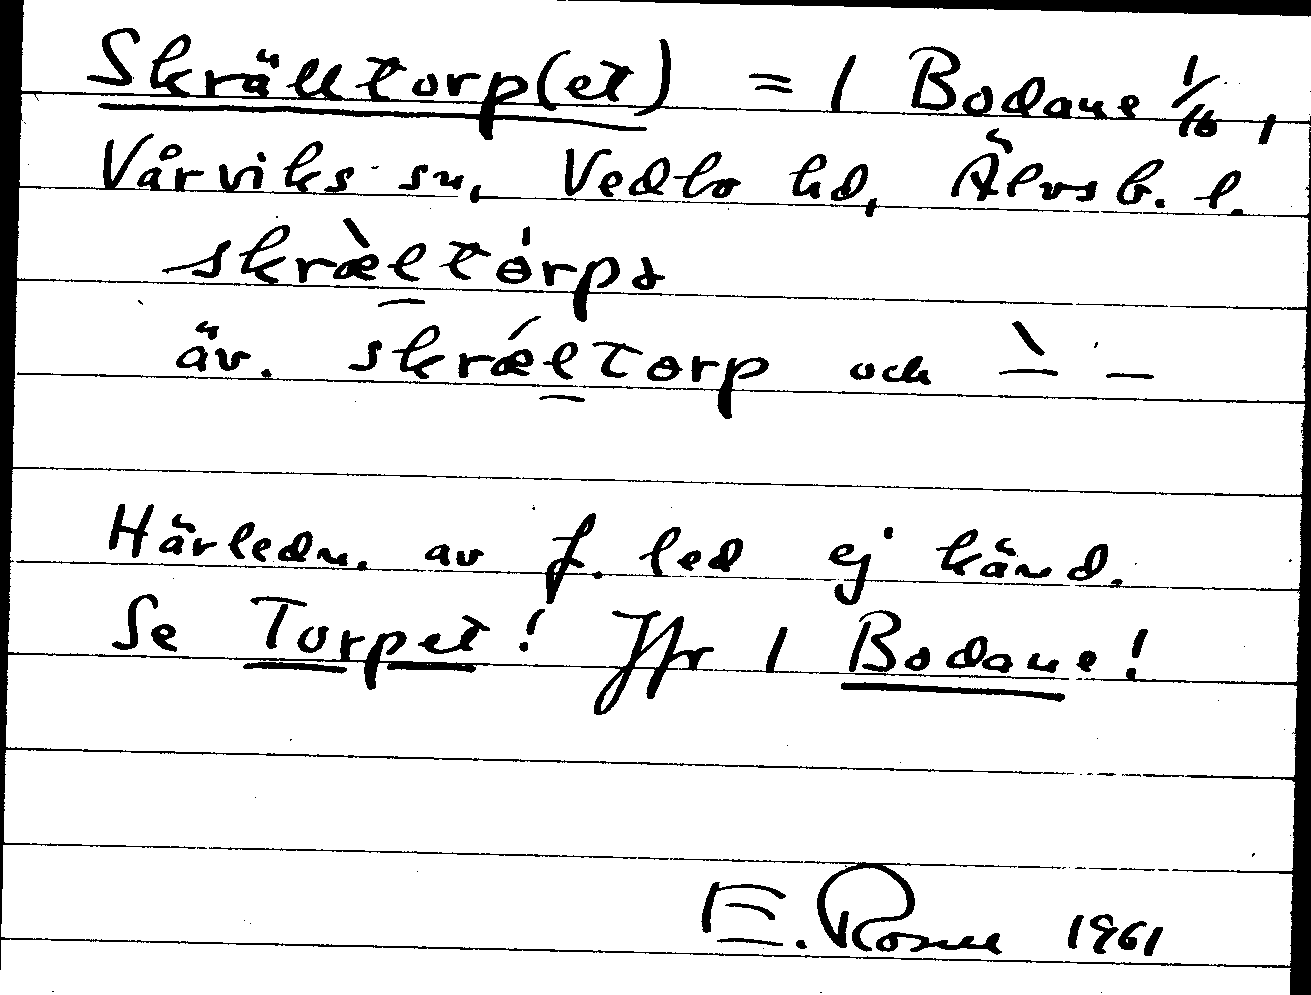 Skrälltorp(et) = 1 Bodane 1/16,
Vårviks sn, Vedbo hd, Älvsb. l.
skræ̀ltórpə
äv. skrǽltorp och ` – –
Härledn. av f. led ej känd.
Se Torpet! Jfr 1 Bodane!
E. Rosell 1961